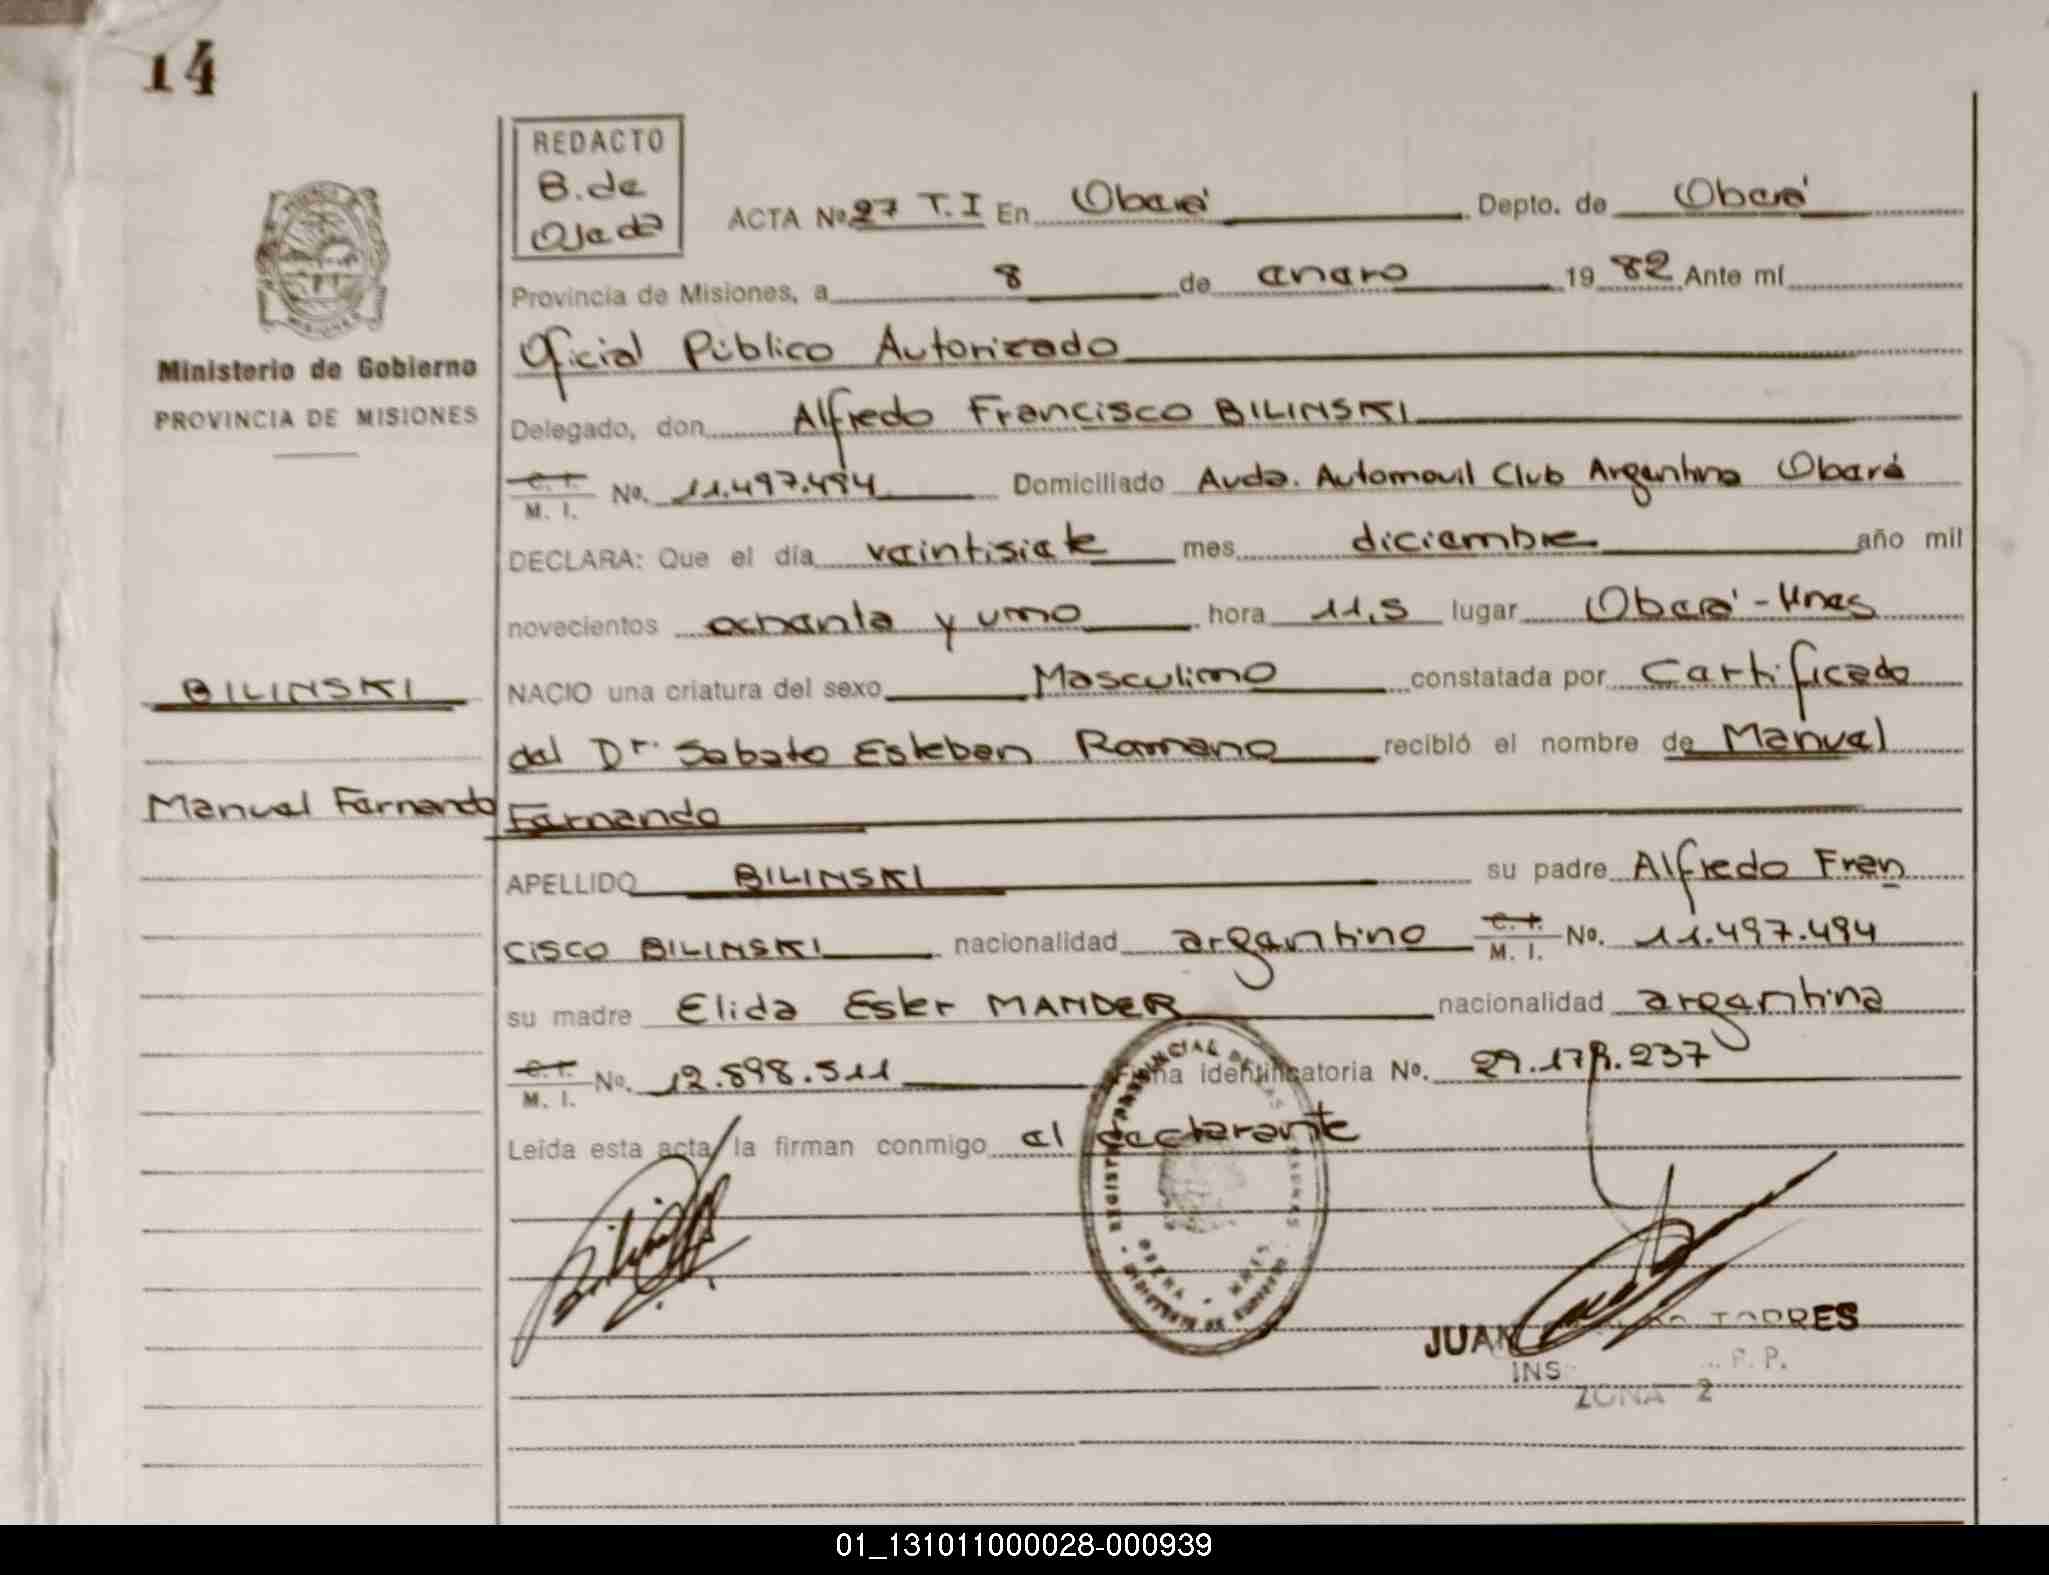 14
REDACTO
B. de
Ojeda
ACTA Nº 27 T. I En Oberá Depto. de Oberá
Provincia de Misiones, a 8 de enero 19 82 Ante mí
Oficial Público Autorizado
Ministerio de Gobierno
PROVINCIA DE MISIONES
Delegado, don Alfredo Francisco BILINSKI
C. I. M. I. No. 11.497.494 Domiciliado Avda. Automovil Club Argentino Oberá
DECLARA: Que el día veintisiete mes diciembre año mil
novecientos ochenta y uno hora 11,5 lugar Oberá - Mnes
BILINSKI
NACIO una criatura del sexo Masculino constatada por Certificado
del Dr. Sabato Esteban Romano recibió el nombre de Manuel
Manuel Fernando
Fernando
APELLIDO BILINSKI su padre Alfredo Fran
cisco BILINSKI nacionalidad argentino C. I. M. I. No. 11.497.494
su madre Elida Ester MANDER nacionalidad argentina
C. I. M. I. No. 12.898.511 Ficha identificatoria No. 29.178.237
Leída esta acta la firman conmigo el declarante
REGISTRO PROVINCIAL DE LAS PERSONAS
OBERA - MNES.
JUAN TORRES
INS R. P.
ZONA 2
01_131011000028-000939